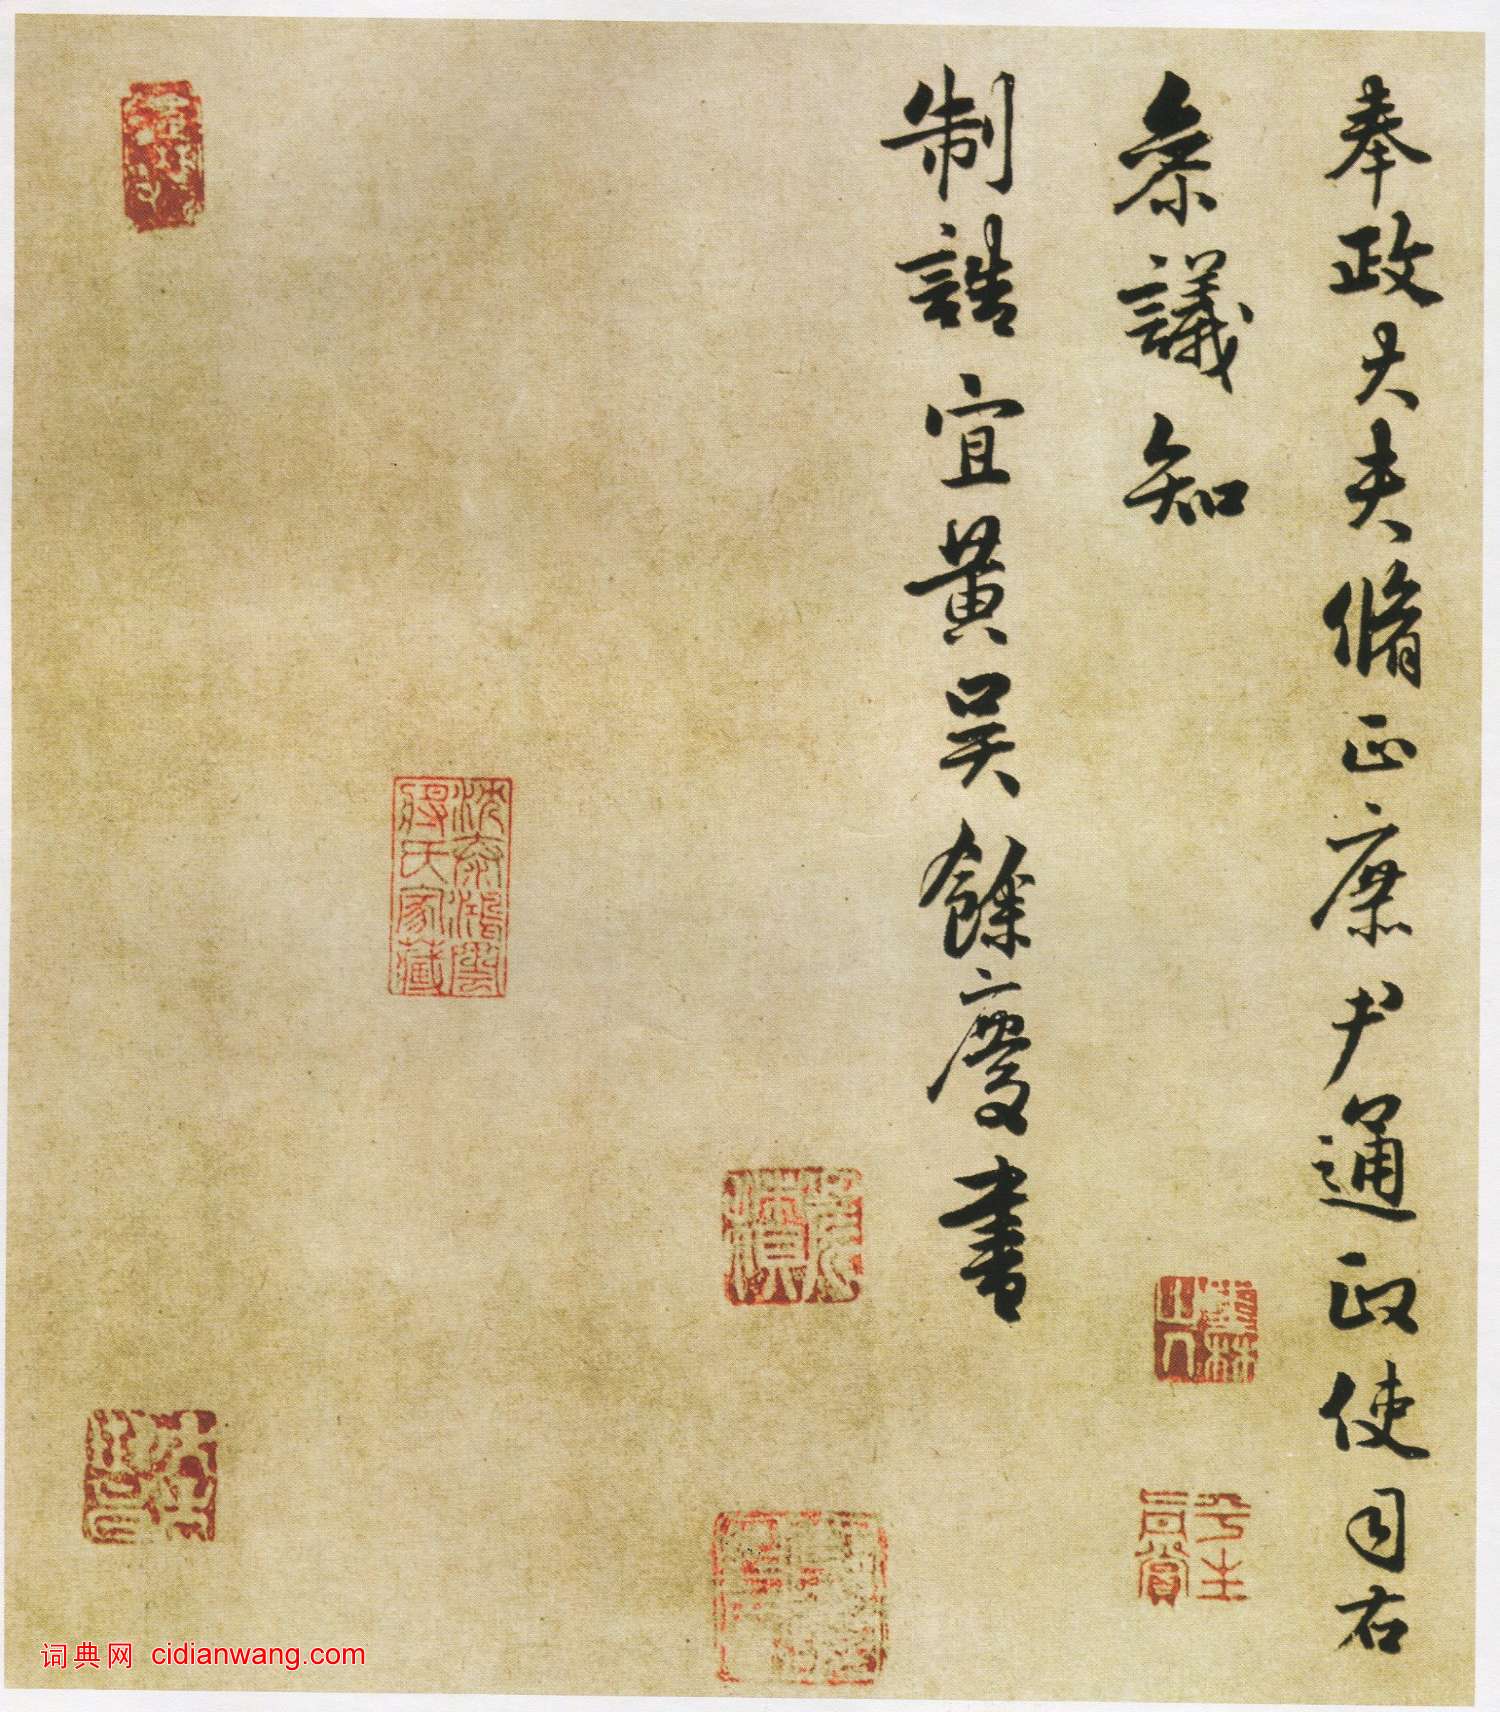 奉政大夫脩正庶尹通政使司右
叅議知
制誥宜黄吴餘慶書
平生真賞
蔣氏家藏
词典网 cidianwang.com